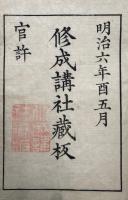 明治六年酉五月
修成講社藏板
官許